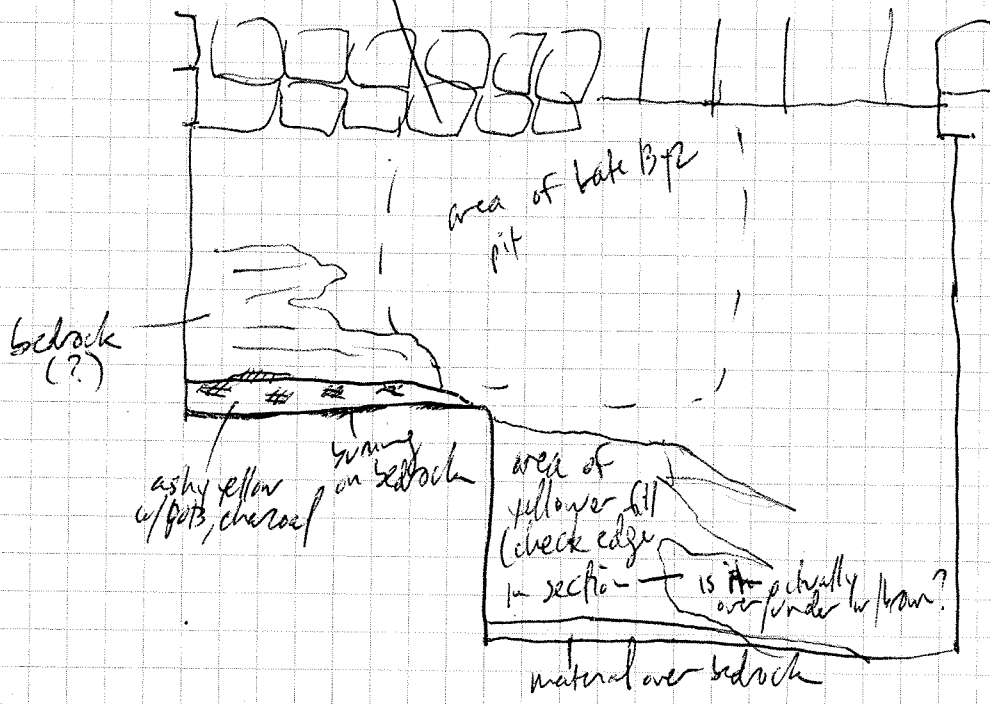 area of Late Byz
pit
bedrock
(?)
ashy yellow
w/ pots, charcoal
burning
on bedrock
area of
yellower fill
(check edge
in section — is it actually
over/under w/ brown?
material over bedrock